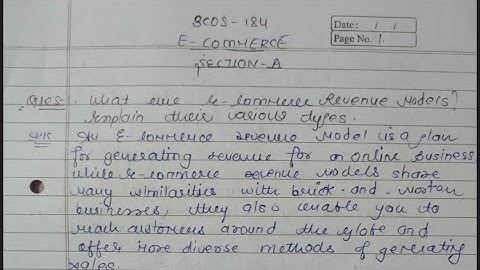 BCOS-184
Date: / /
Page No. 1.
E-COMMERCE
SECTION-A
Ques- What are E-Commerce Revenue Models?
Explain their various types.
Ans An E-Commerce revenue Model is a plan
for generating revenue for an online business
while E-commerce revenue models share
many similarities with brick-and-mortar
businesses, they also enable you to
reach customers around the globe and
offer more diverse methods of generating
sales.